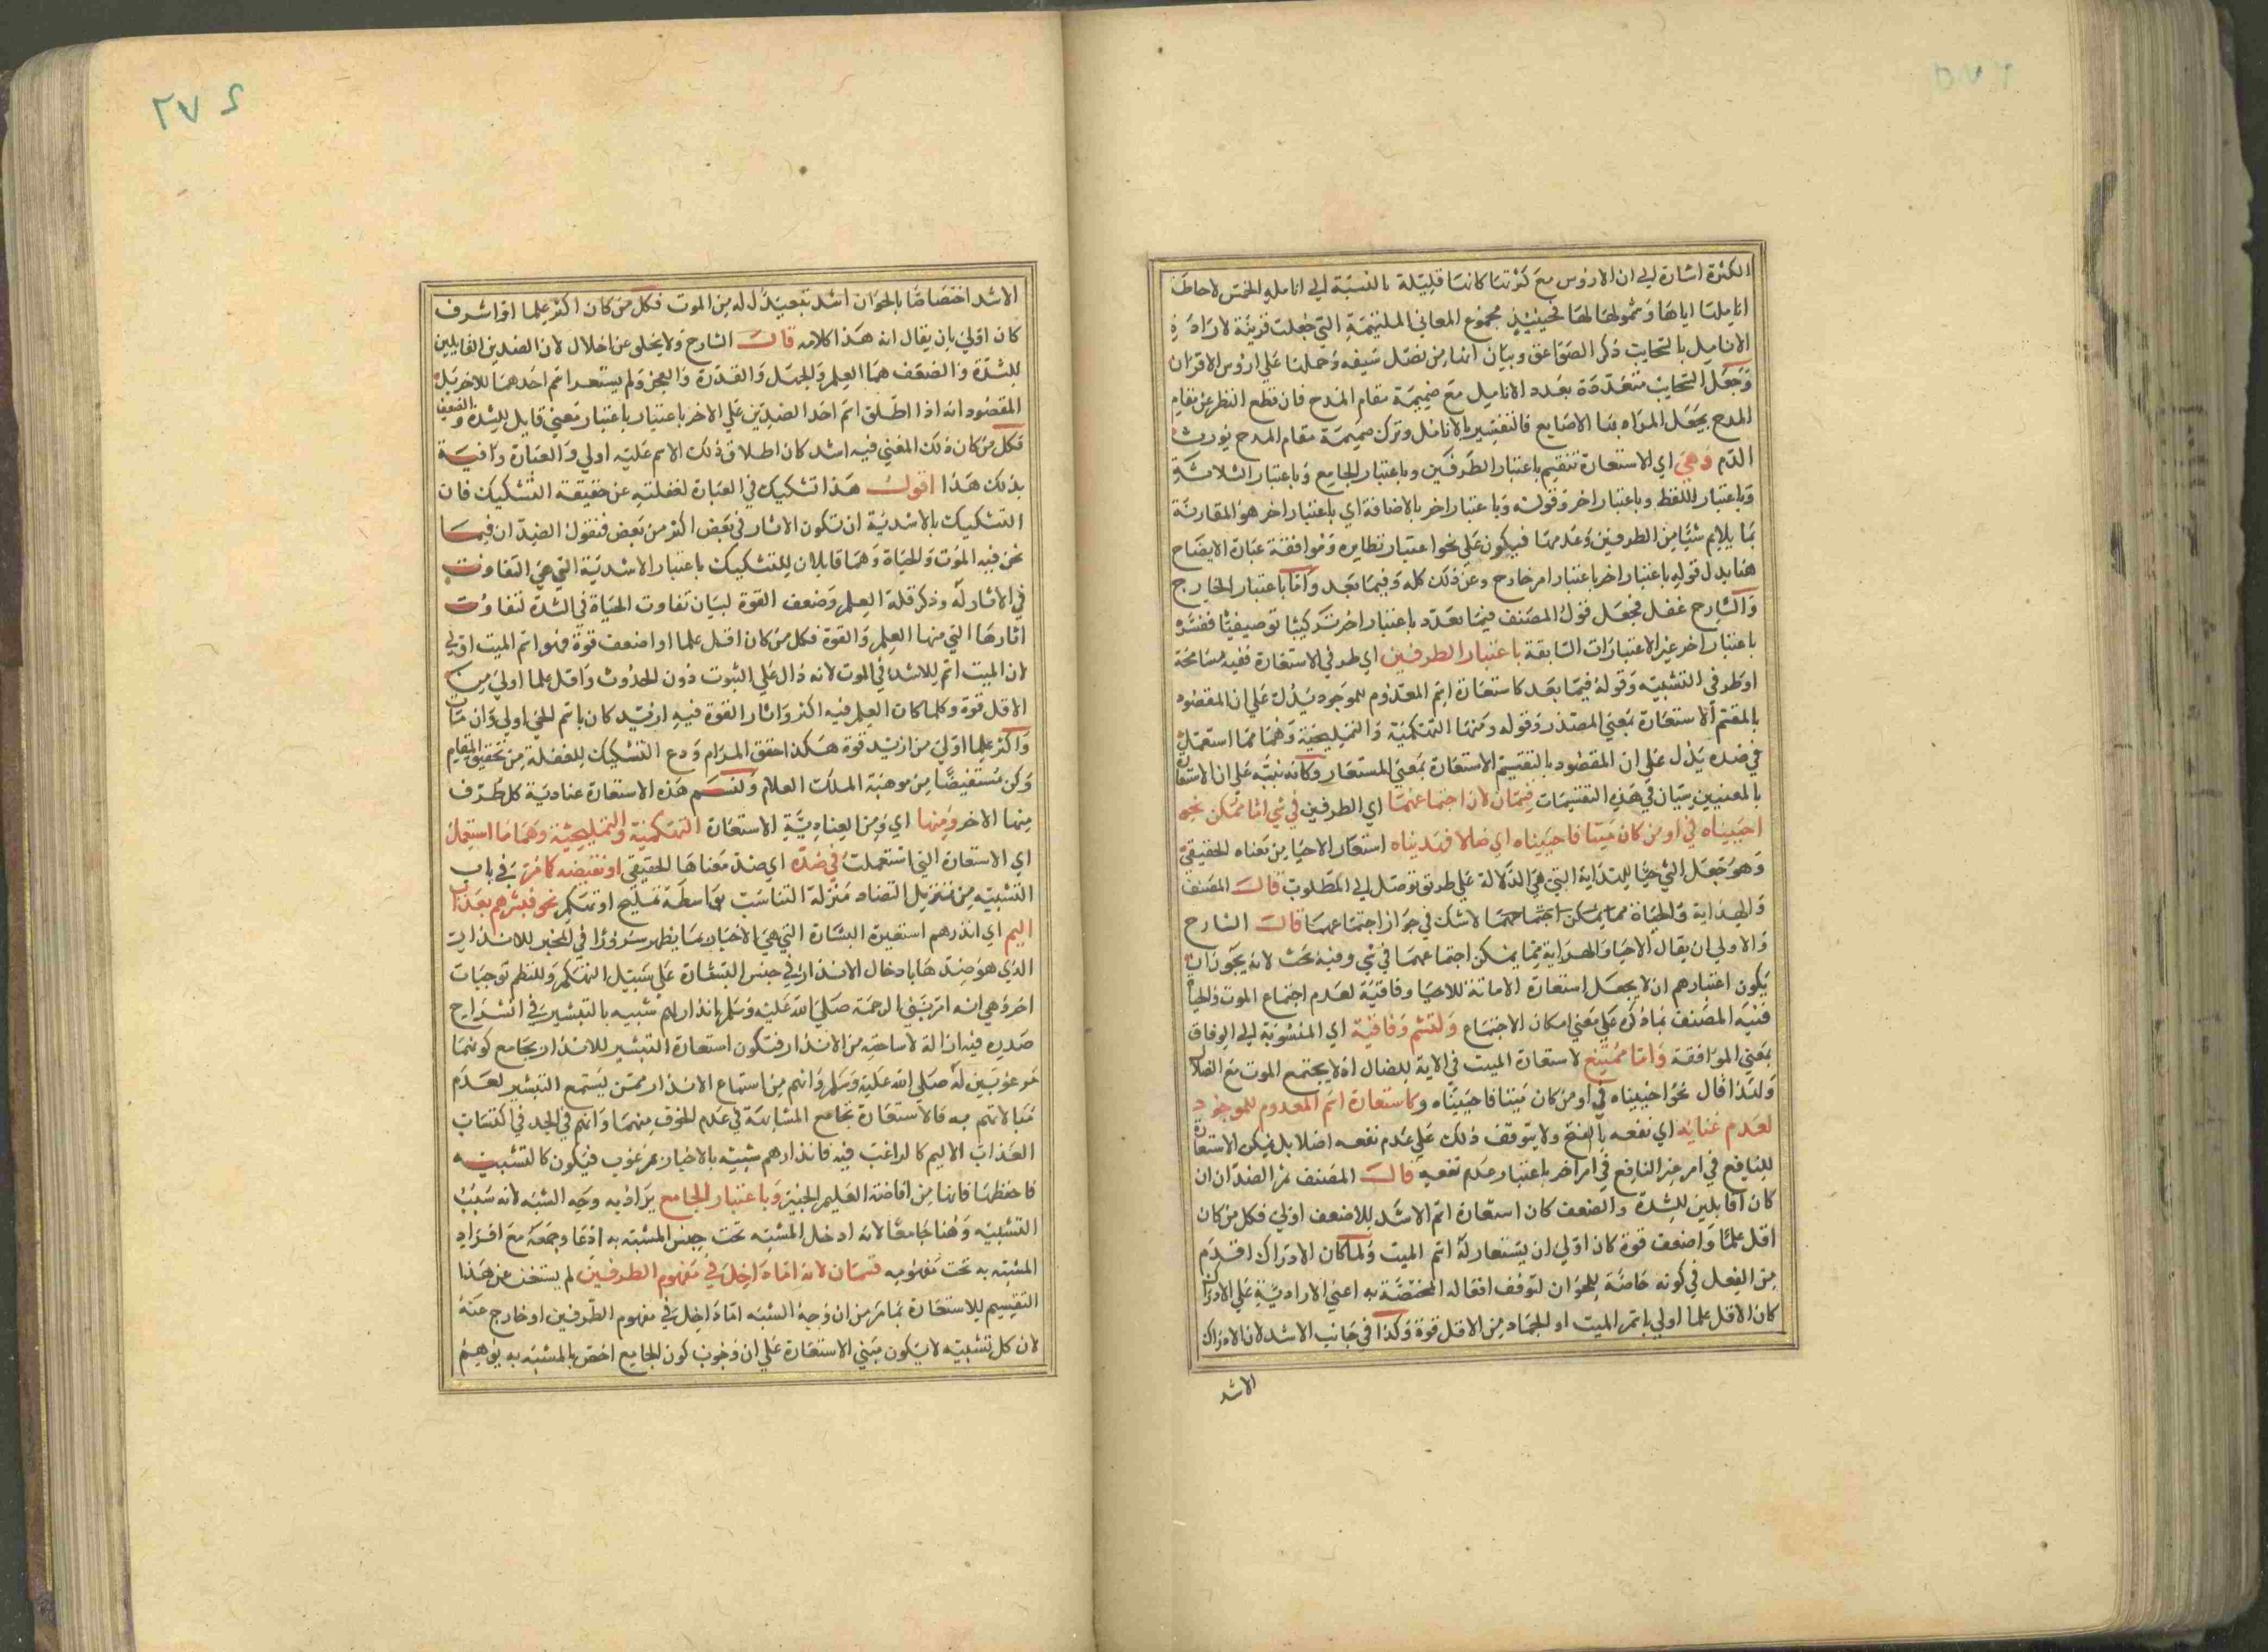 الكثرة اشارة الى ان الارؤس مع كثرتها كانها قليلة بالنسبة الى انامله الخمس لاحاطة
اناملها اياها وشمولها لها فحينئذ مجموع المعاني الملتئمة التي جعلت قرينة لارادة
الانامل بالسحايب ذكر الصواعق وبيان انها من نصل سيفه وحملها على ارؤس الاقران
وجعل السحايب متعددة بعدد الانامل مع ضميمة مقام المدح فان قطع النظر عن مقام
المدح يجعل المراد بها الاصابع فالتفسير بالانامل وترك ضميمة مقام المدح يورث
الذم وهي اي الاستعارة تنقسم باعتبار الطرفين وباعتبار الجامع وباعتبار الثلاثة
وباعتبار اللفظ وباعتبار اخر وقوله وباعتبار اخر بالاضافة اي باعتبار اخر هو المقارنة
بما يلايم شيئا من الطرفين وعدمها فيكون على نحو اعتبار نظايره وموافقة عبارة الايضاح
هنا بدل قوله باعتبار اخر باعتبار امر خارج وعن ذلك كله وفيما بعد واما باعتبار الخارج
والشارح غفل فجعل قول المصنف فيما بعد باعتبار اخر تركيبا توصيفيا ففسره
باعتبار اخر غير الاعتبارات السابقة باعتبار الطرفين اي طرفي الاستعارة ففيه مسامحة
او طرفي التشبيه وقوله فيما بعد كاستعارة اسم المعدوم للموجود يدل على ان المقصود
بالمقسم الاستعارة بمعنى المصدر وقوله ومنها التهكمية والتمليحية وهما مما استعمل
في ضده يدل على ان المقصود بالتقسيم الاستعارة بمعنى المستعار وكانه نبه على ان الاستعارة
بالمعنيين سيان في هذه التقسيمات قسمان لان اجتماعهما اي الطرفين في شي اما ممكن نحو
احييناه في اومن كان ميتا فاحييناه اي ضالا فهديناه استعار الاحيا من معناه الحقيقي
وهو جعل الشي حيا للهداية التي هي الدلالة على طريق توصل الى المطلوب قال المصنف
والهداية والحياة مما يمكن اجتماعهما لا شك في جواز اجتماعهما قال الشارح
والاولى ان يقال الاحيا والهداية مما يمكن اجتماعهما في شي وفيه بحث لانه يجوز ان
يكون اعتبارهم ان لا يجعل استعارة الاماتة للاحيا وفاقية لعدم اجتماع الموت والحياة
فنبه المصنف بما ذكره على معنى امكان الاجتماع ولتسم وفاقية اي المنسوبة الى الوفاق
بمعنى الموافقة واما ممتنع لاستعارة الميت في الاية للضال اذ لا يجتمع الموت مع الضلال
ولهذا قال نحو احييناه في اومن كان ميتا فاحييناه وكاستعارة اسم المعدوم للموجود
لعدم غنايه اي نفعه بالفتح ولا يتوقف ذلك على عدم نفعه اصلا بل يمكن الاستعارة
للنافع في امر غير النافع في امر اخر باعتبار عدم نفعه قال المصنف ثم الضدان ان
كانا قابلين للشدة والضعف كان استعارة اسم الاشد للاضعف اولى فكل من كان
اقل علما واضعف قوة كان اولى ان يستعار له اسم الميت ولما كان الادراك اقدم
من الفعل في كونه خاصة للحيوان لتوقف افعاله المختصة به اعني الارادية على الادراك
كان الاقل علما اولى باسم الميت او الجماد من الاقل قوة وكذا في جانب الاشد لان الادراك
الاشد
٢٧٤
الاشد اختصاصا بالحيوان اشد تبعيدا له من الموت فكل من كان اكثر علما او اشرف
كان اولى بان يقال انه هذا كلامه قال الشارح ولا يخلو عن اخلال لان الضدين القابلين
للشدة والضعف هما العلم والجهل والقدرة والعجز ولم يستعر اسم احدهما للاخر بل
المقصود انه اذا اطلق اسم احد الضدين على الاخر باعتبار معنى قابل للشدة والضعف
فكل من كان ذلك المعنى فيه اشد كان اطلاق ذلك الاسم عليه اولى والعبارة وافية
بذلك هذا اقول هذا تشكيك في العبارة لغفلته عن حقيقة التشكيك فان
التشكيك بالاشدية ان تكون الاثار في بعض اكثر من بعض فنقول الضدان فيما
نحن فيه الموت والحياة وهما قابلان للتشكيك باعتبار الاشدية التي هي التفاوت
في الاثار له وذكر قلة العلم وضعف القوة لبيان تفاوت الحياة في الشدة لتفاوت
اثارها التي منها العلم والقوة فكل من كان اقل علما او اضعف قوة فهو اسم الميت اولى
لان الميت اسم للاشد في الموت لانه دال على الثبوت دون الحدوث واقل علما اولى من
الاقل قوة وكلما كان العلم فيه اكثر واثار القوة فيه ازيد كان باسم الحي اولى وان مات
واكثر علما اولى من ازيد قوة هكذا حقق المرام ودع التشكيك للغفلة من تحقيق المقام
وكن مستفيضا من موهبة الملك العلام ولتسم هذه الاستعارة عنادية كل طرف
منها الاخر ومنها اي ومن العنادية الاستعارة التهكمية والتمليحية وهما ما استعمل
اي الاستعارة التي استعملت في ضده اي ضد معناها الحقيقي او نقيضه كما مر في باب
التشبيه من تنزيل التضاد منزلة التناسب بواسطة تمليح او تهكم نحو فبشرهم بعذاب
اليم اي انذرهم استعيرت البشارة التي هي الاخبار بما يظهر سرورا في المخبر للانذار
الذي هو ضدها بادخال الانذار في جنس البشارة على سبيل التهكم وللنظم توجيهات
اخر وهي انه امر نبي الرحمة صلى الله عليه وسلم بانذارهم شبيه بالتبشير في انشراح
صدره فيه ازالة لاساحته من الانذار فتكون استعارة التبشير للانذار بجامع كونهما
مرغوبين له صلى الله عليه وسلم وانهم من استماع الانذار ممن يستمع التبشير لعدم
مبالاتهم به فالاستعارة بجامع المشابهة في عدم الخوف منهما وانهم في الجد في اكتساب
العذاب الاليم كالراغب فيه فانذارهم شبيه بالاخبار بمرغوب فيكون كالتشبيه
فاحفظها فانها من افاضة العليم الخبير وباعتبار الجامع يراد به وجه الشبه لانه سبب
التشبيه وهنا جامعا لانه ادخل المشبه تحت جنس المشبه به ادعا وجمعه مع افراد
المشبه به تحت مفهومه قسمان لانه اما داخل في مفهوم الطرفين لم يستغن عن هذا
التقسيم للاستعارة بما مر من ان وجه الشبه اما داخل في مفهوم الطرفين او خارج عنه
لان كل تشبيه لا يكون مبنى الاستعارة على ان وجوب كون الجامع اخص بالمشبه به يوهم